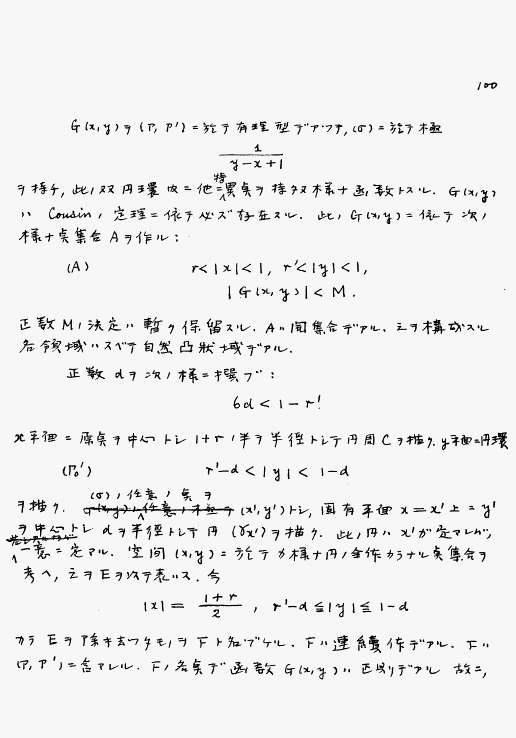 100
G(x,y)ヲ(Γ, Γ')ニ於テ有理型デアツテ, (σ)ニ於テ極
1
y−x+1
ヲ持チ, 此ノ双円環内ニ他ニ特異点ヲ持タヌ様ナ函数トスル. G(x,y)
ハ Cousinノ定理ニ依テ必ズ存在スル. 此ノG(x,y)ニ依テ次ノ
様ナ点集合Aヲ作ル:
(A) r<|x|<1, r'<|y|<1,
|G(x,y)|<M.
正数Mノ決定ハ暫ク保留スル. Aハ開集合デアル. 之ヲ構成スル
各領域ハスベテ自然凸状域デアル.
正数dヲ次ノ様ニ撰ブ:
6d<1−r'.
x平面ニ原点ヲ中心トシ 1+rノ半ヲ半径トシテ円周Cヲ描ク. y平面ニ円環
(Γ₀') r'−d<|y|<1−d
ヲ描ク. (σ)ノ任意ノ点ヲ (x',y')トシ, 固有平面 x=x'上ニ y'
ヲ中心トシ dヲ半径トシテ円(γx')ヲ描ク. 此ノ円ハ x'ガ定マレバ,
一意ニ定マル. 空間(x,y)ニ於テカ様ナ円ノ全体カラナル点集合ヲ
考ヘ, 之ヲEヲ以テ表ハス. 今
|x|= 1+r/2 , r'−d≦|y|≦1−d
カラEヲ除キ去ツタモノヲFト名ヅケル. Fハ連続体デアル. Fハ
(Γ, Γ')ニ含マレル. Fノ各点デ函数G(x,y)ハ正則デアル 故ニ,